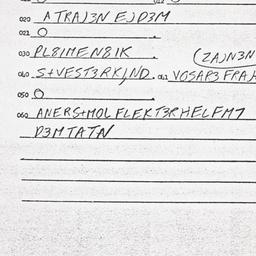 020 ATRAJ3N EJD3M
021 O
030 PL8IMEN8IK (ZAJN3N
040 S+VEST3RKJND. 041 VOSAP3 FRA
050 O
060 ANERS+MOLFLEKT3RHELFM7
D3MTATN